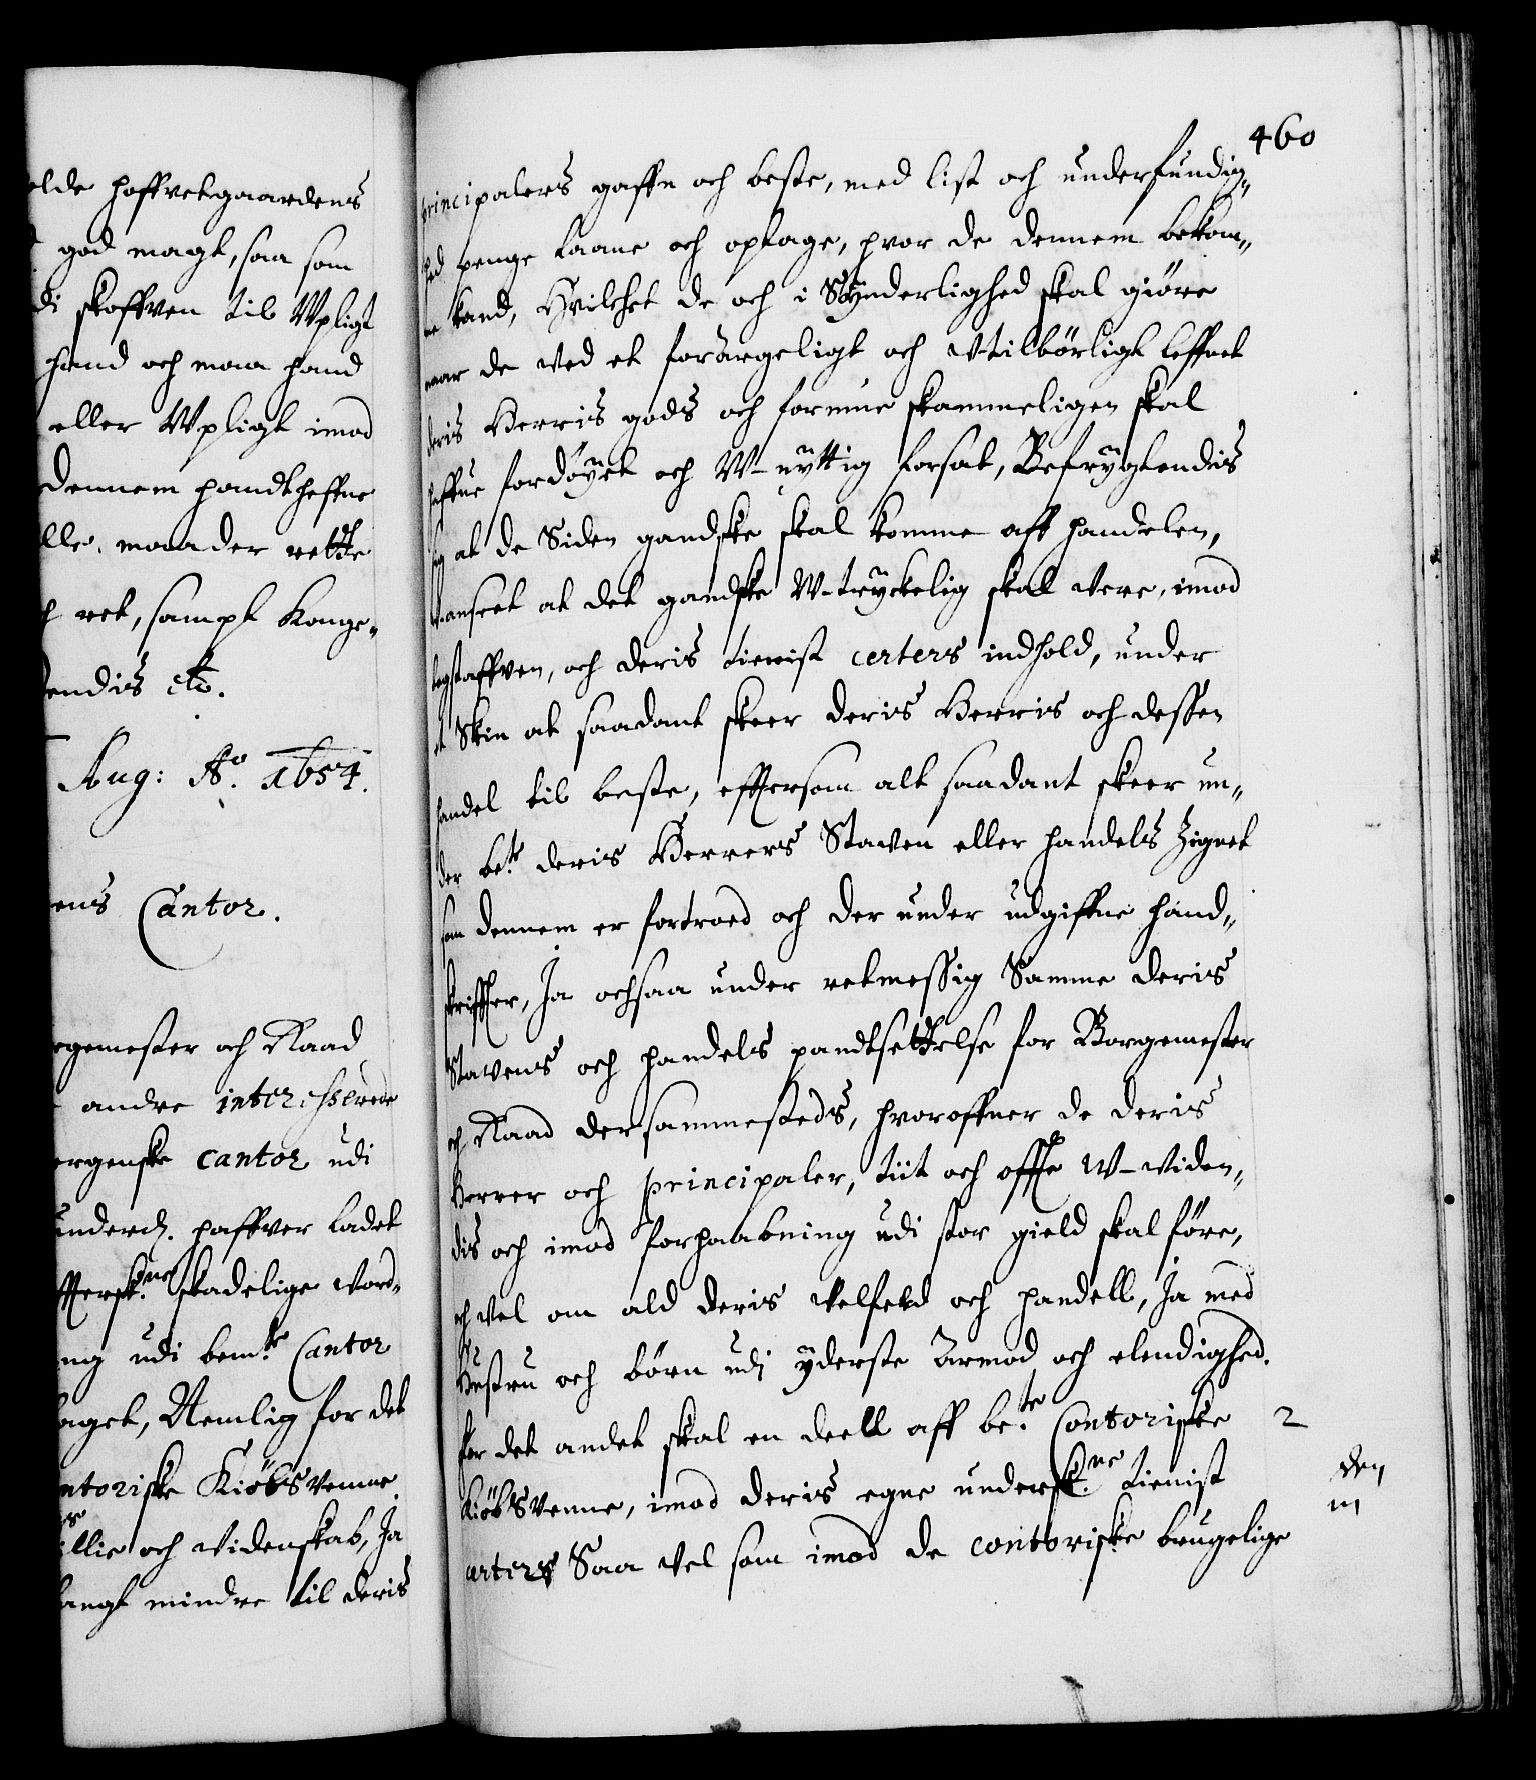 elde hoffvetgaardens
god magt, saa som
di skoffven til Wpligt
hand och maa hand
eller Wpligt imod
dennem handtheffue
lle maader rette
ret, sampt Konge„
endis etc.
Aug: Ao. 1654.
ens Cantor.
rgemester och Raad
andre interesserede
ergenske cantor udi
underd. haffver ladet
ffterskne. skadelige Vord„
ng udi bemte. Cantor
taget, Nemlig for det
ntoriske Kiöbsvenne
illie och videnskab, Ja
langt mindre til deris
460
principalers gaffn och beste, med list och underfundig„
hed penge laane och optage, hvor de dennem bekom„
me kand, Hvilchet de och i Synderlighed skal giöre
naar de ved et forargeligt och Vtilbörligt leffnet
deris Herris gods och formue skammeligen skal
haffue fordöyet och W-nyttig forsat, Befrygtendis
sig at de Siden gandske skal komme aff handelen,
Vanseet at det gandske W-tryckelig skal vere, imod
bogstaffven, och deris tienist certers indhold, under
et Skin at saadant skeer deris Herris och dessen
handel til beste, efftersom alt saadant skeer un„
der bete. deris Herrers Staven eller handels Zignet
som dennem er fortroed och der under udgiffne hand„
skriffter, Ja ochsaa under retmessig Samme deris
Stavens och handels pandtsettelse for Borgemester
och Raad dersammesteds, hvoroffuer de deris
Herrer och principaler, tiit och offte W-viden„
dis och imod forhaabning udi stor gield skal före,
och vel om ald deris velferd och handell, Ja med
Hustru och börn udi yderste Armod och elendighed.
for det andet skal en deell aff bete. Contoriske 2
Kiöbsvenne, imod deris egne underskne. tienist
certers Saa vel som imod de contoriske brugelige
den